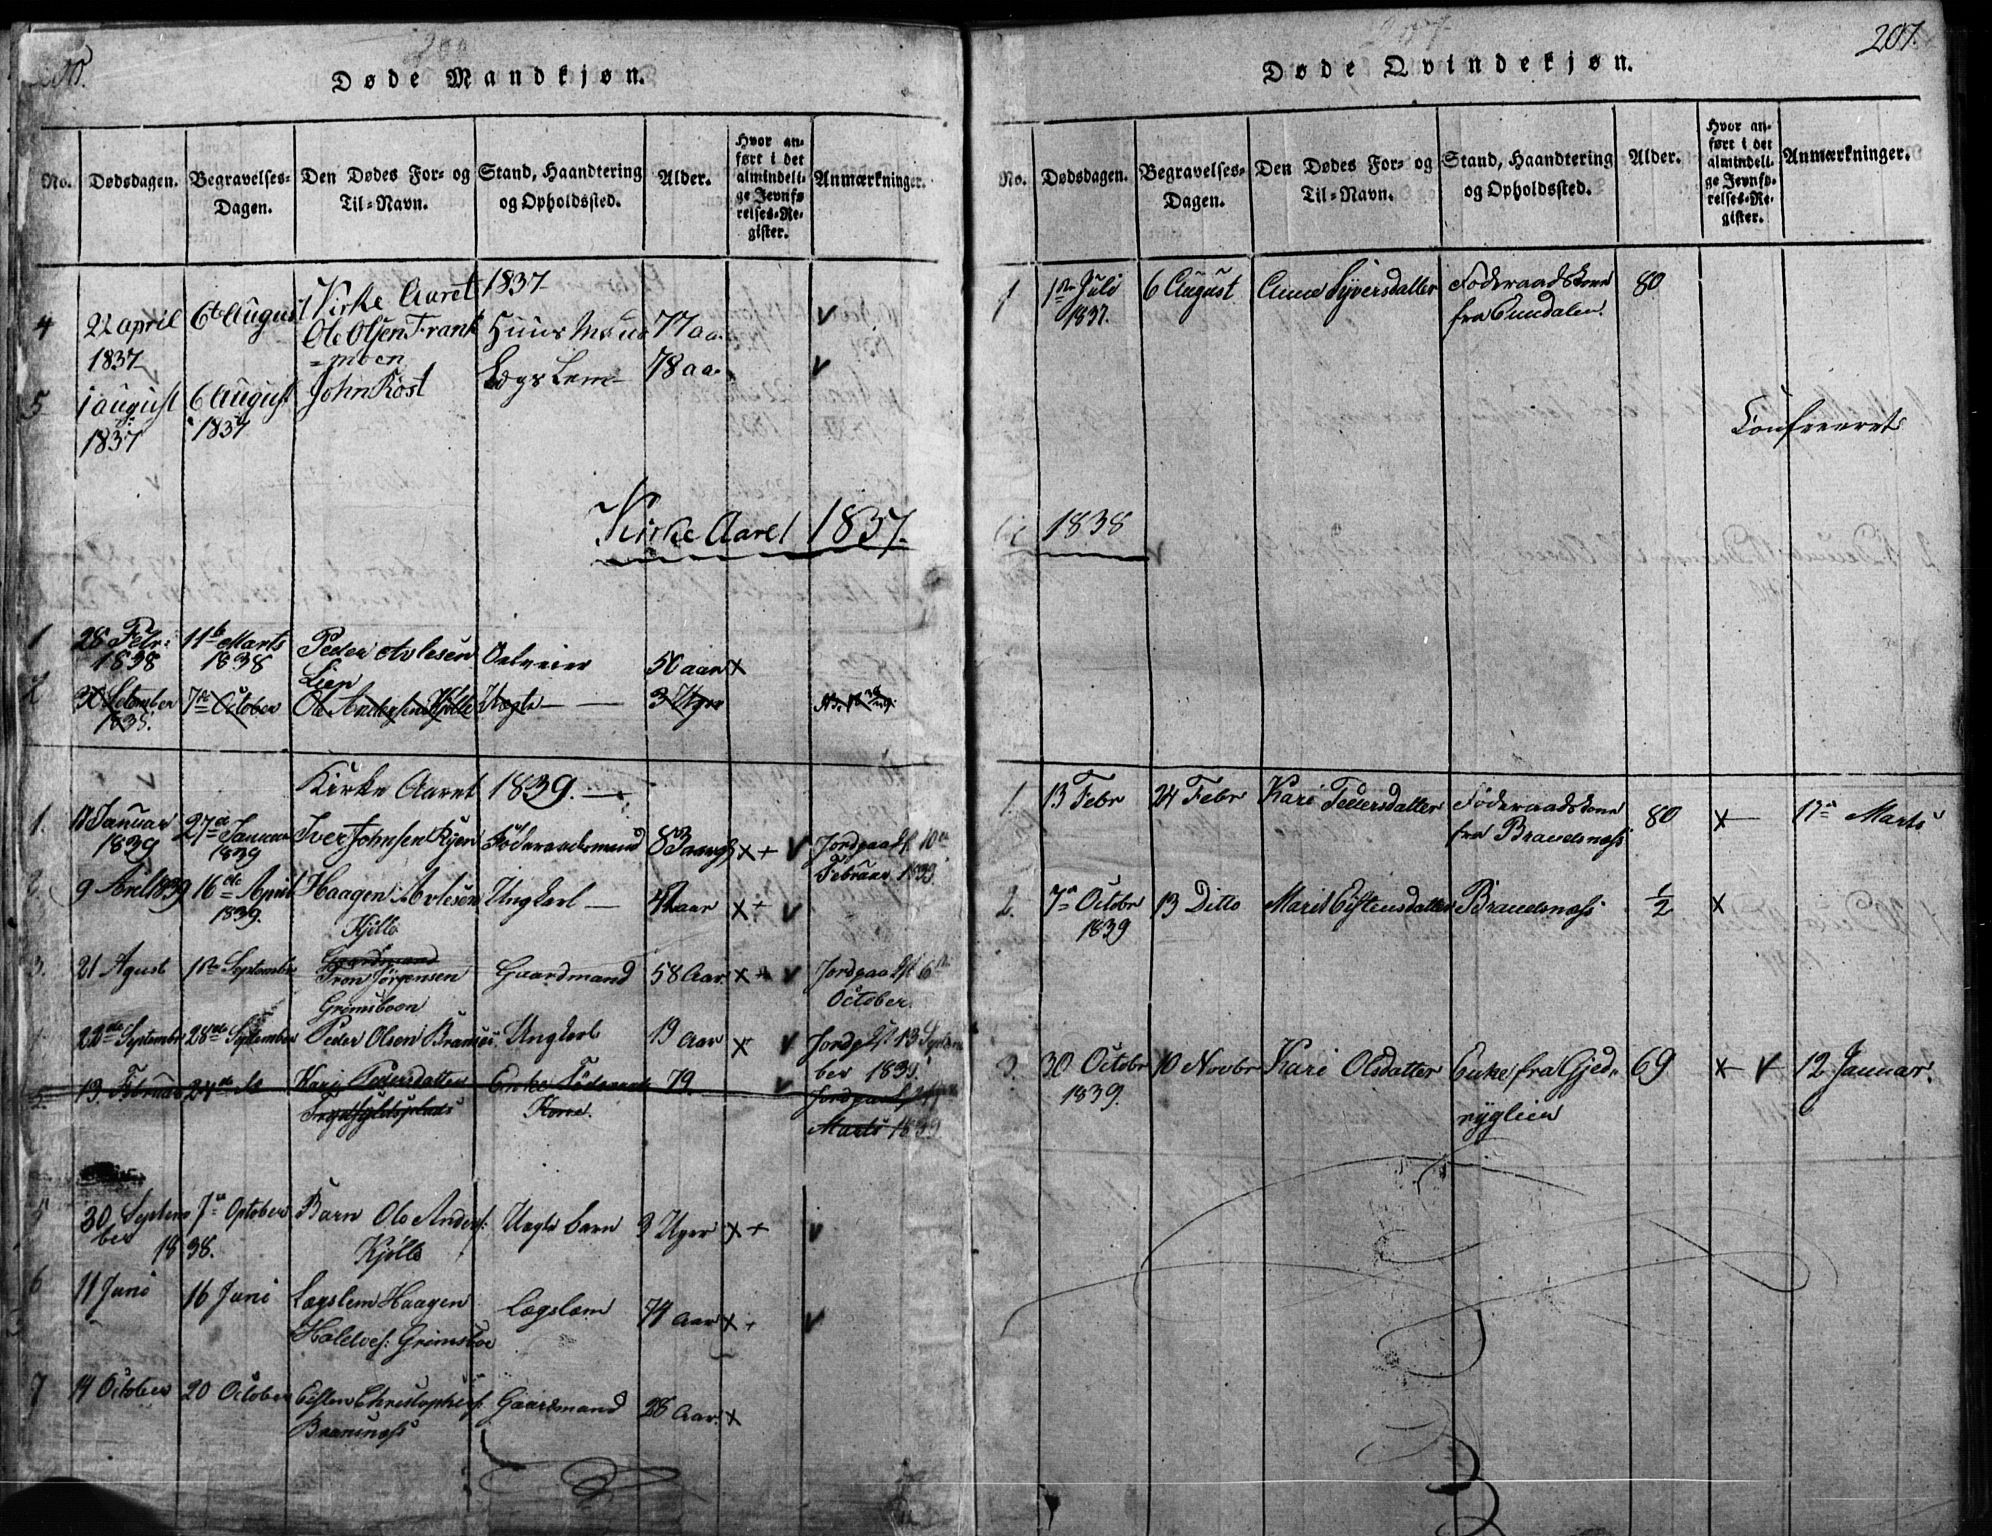 Døde Mandkjøn.
No. Dødsdagen. Begravelses-Dagen. Den Dødes For- og Til-Navn. Stand, Haandtering og Opholdssted. Alder. Hvor anført i det almindelige Jevnførelses-Register. Anmærkninger.
Kirke Aaret 1837
4 22 april 1837 6te August Ole Olsen Frank
=moen Huus Mand 77 aa. v
5 1 august 1837 6 August 1837 John Röst Lægs Lem 78 aa. v
Kirke Aaret 1837.
1 28 Febr: 1838 11te Marts 1838 Peder Avlesen
Lien 50 aar x
2 30 Setember 1838. 7de October Ole Andersen Kjølle Uægte 3 Uger
Kirke Aaret 1839.
1. Januar 1839 27de Januar 1839 Iver Johnsen Føderaadsmand 83 aar x+ v Jordpaak. 10de
Februar 1839
2. 9 April 1839 16de April 1839. Haagen Avlesen
Kjølle Ungkerl x+ v
3. 21 Agust 1ste September Gaardmand
Tron Jørgensen
Grimsboen Gaardmand 58 Aar. x+ v Jordpaak. 6te
October.
22de Septembr 28de September Peder Olsen Ungkerl 19 Aar x v 13
ber 1839.
5. 13. Februar 24de Kari Pedersdatter Enke Føderaads
Kone. 79. v
Marts 1839
5 30 Septem
ber 1838. 7de October Barn Ole Anders:
Kjølle Uægte barn 3 Uger x+ v
6 11 Juni 16 Juni Lægslem Haagen
Grimsboe Lægslem 74 Aar x+ v
7 14 October 20 October Eisten Christophers:
Bramnæss Gaardmand 28 Aar. x
207.
Døde Qvindekjøn.
No. Dødsdagen. Begravelses-Dagen. Den Dødes For- og Til-Navn. Stand, Haandtering og Opholdssted. Alder. Hvor anført i det almindelige Jevnførelses-Register. Anmærkninger.
1 1ste Juli 1837. 6 August Anne Syversdatter Föderaadskone
fra 80
Confereret
1838
1. 13 Febr 24 Febr Kari Pedersdatter Föderaadskone
fra Bramsnæss 80 x 17de Marts
2. 7de Octobr 1839 13 Ditto Marit Eistensdatter Bramsnæss ½ x
3. 30 Octobr 1839. 10 Novbr Kari Olsdatter Enke fra Gjed-
ryglien 69 x v 12 Januar.